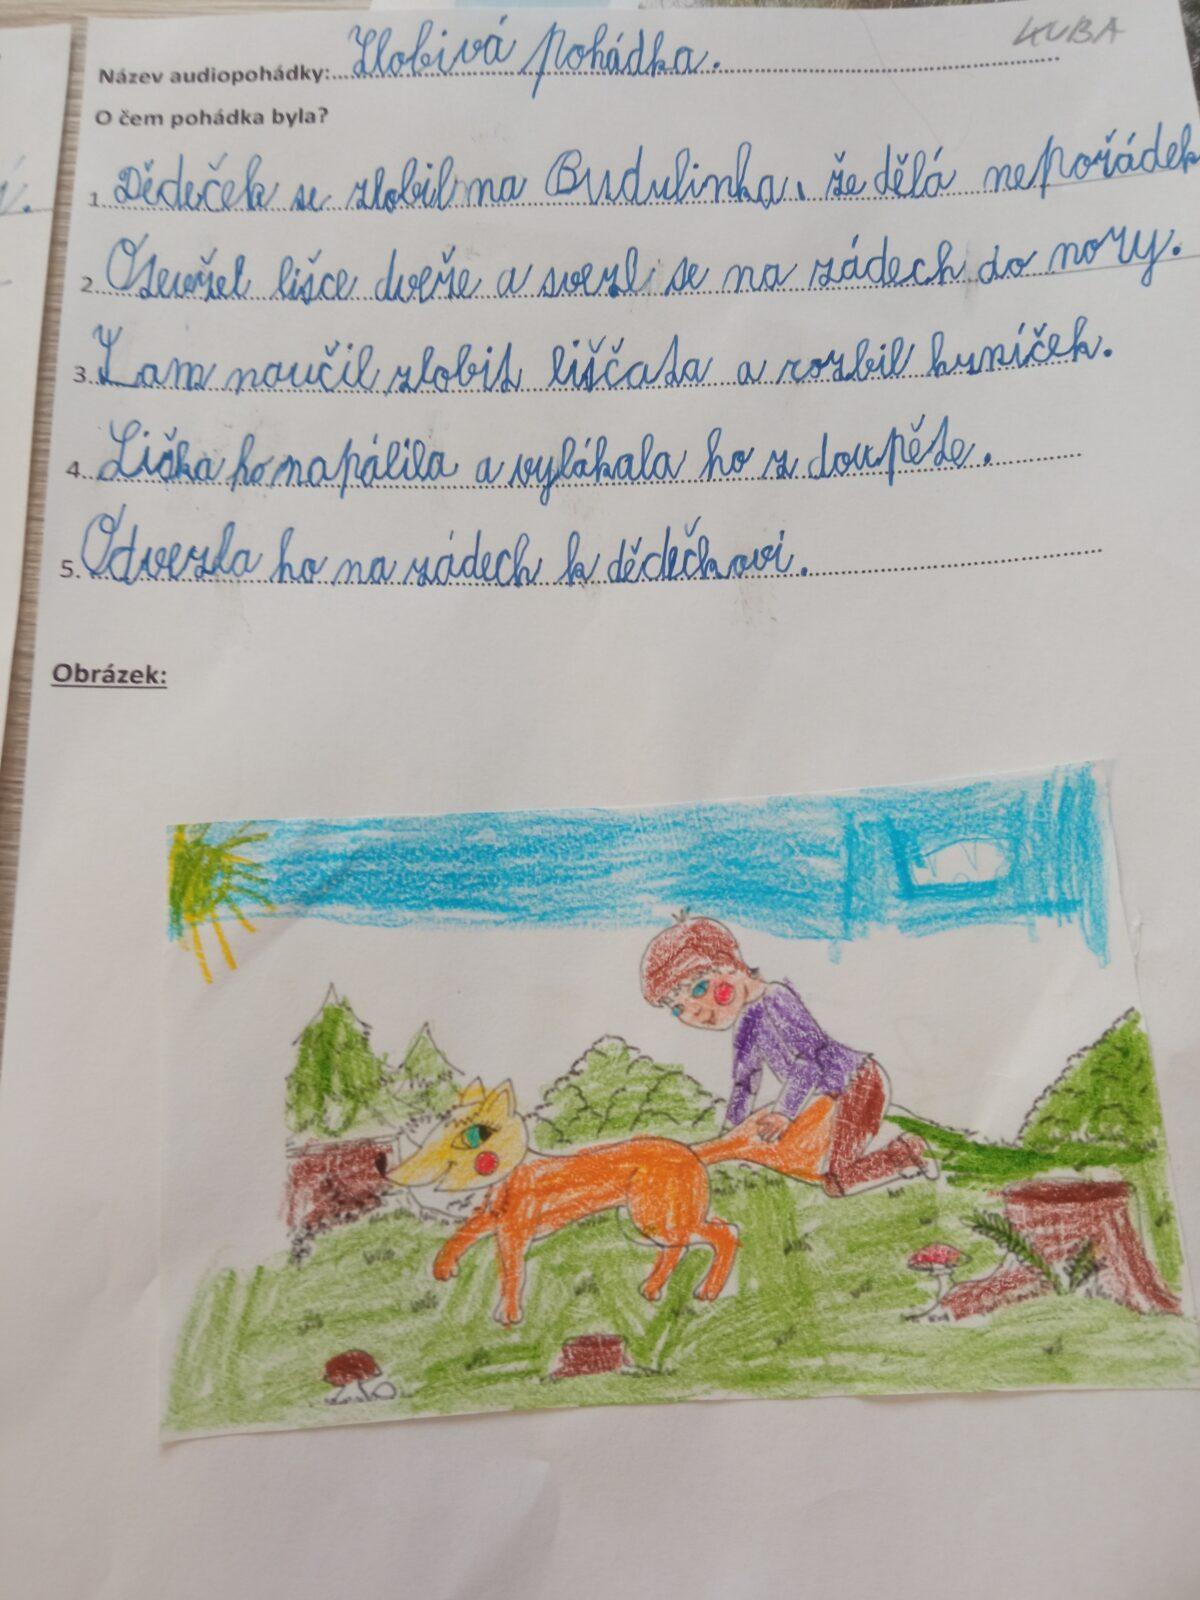 KUBA
Název audiopohádky: Zlobivá pohádka.
O čem pohádka byla?
1. Dědeček se zlobil na Budulinka, že dělá nepořádek
2. Otevřel lišce dveře a svezl se na zádech do nory.
3. Tam naučil zlobit liščata a rozbil hrníček.
4. Liška ho napálila a vylákala ho z doupěte.
5. Odvezla ho na zádech k dědečkovi.
Obrázek: